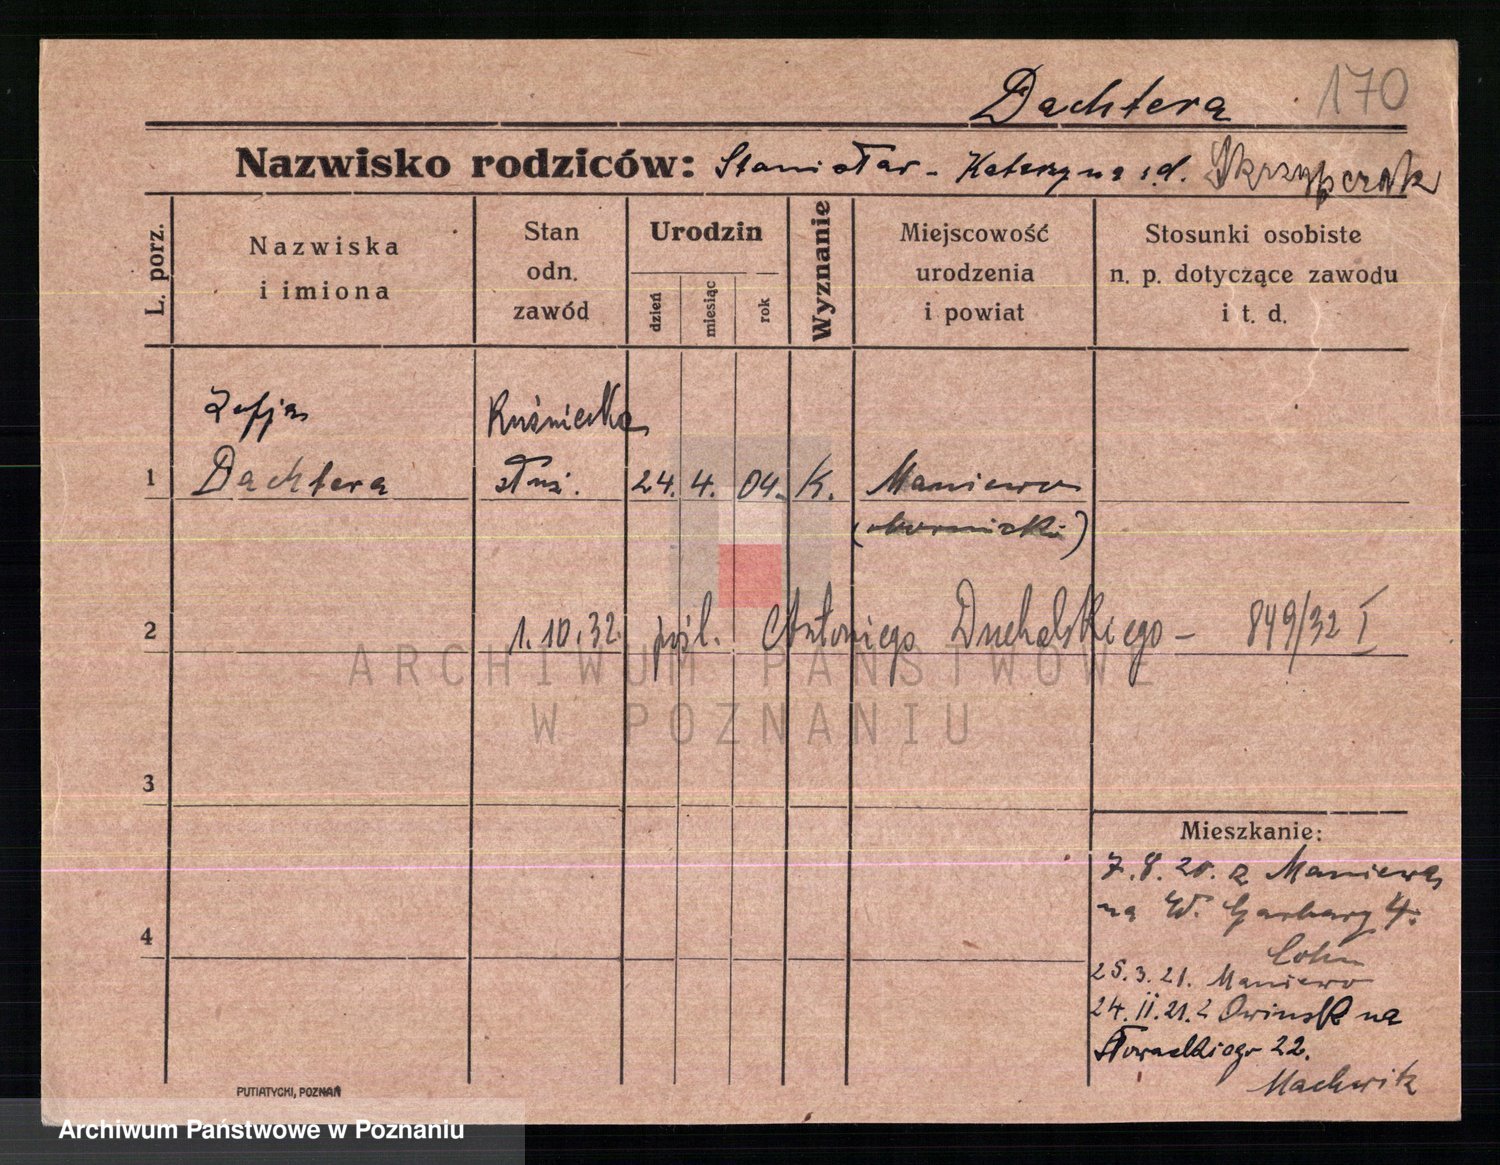 Dachtera 170
Nazwisko rodziców: Stanisław - Katarzyna z d. Skrzypczak
L. porz.
Nazwiska
i imiona
Stan
odn.
zawód
Urodzin
dzień
miesiąc
rok
Wyznanie
Miejscowość
urodzenia
i powiat
Stosunki osobiste
n. p. dotyczące zawodu
i t. d.
Zofja
1 Dachtera służ. 24. 4. 04. K. Maniewo
(obornicki)
2 1.10.32. pośl. Antoniego Duchalskiego - 849/32 I
ARCHIWUM PAŃSTWOWE
W POZNANIU
3
Mieszkanie:
7.8.20. z Maniewa
na W. Garbary 4.
4
Cohn
25.3.21. Maniewo
24.11.21. z Owińsk na
Słowackiego 22.
PUTIATYCKI, POZNAŃ
Archiwum Państwowe w Poznaniu